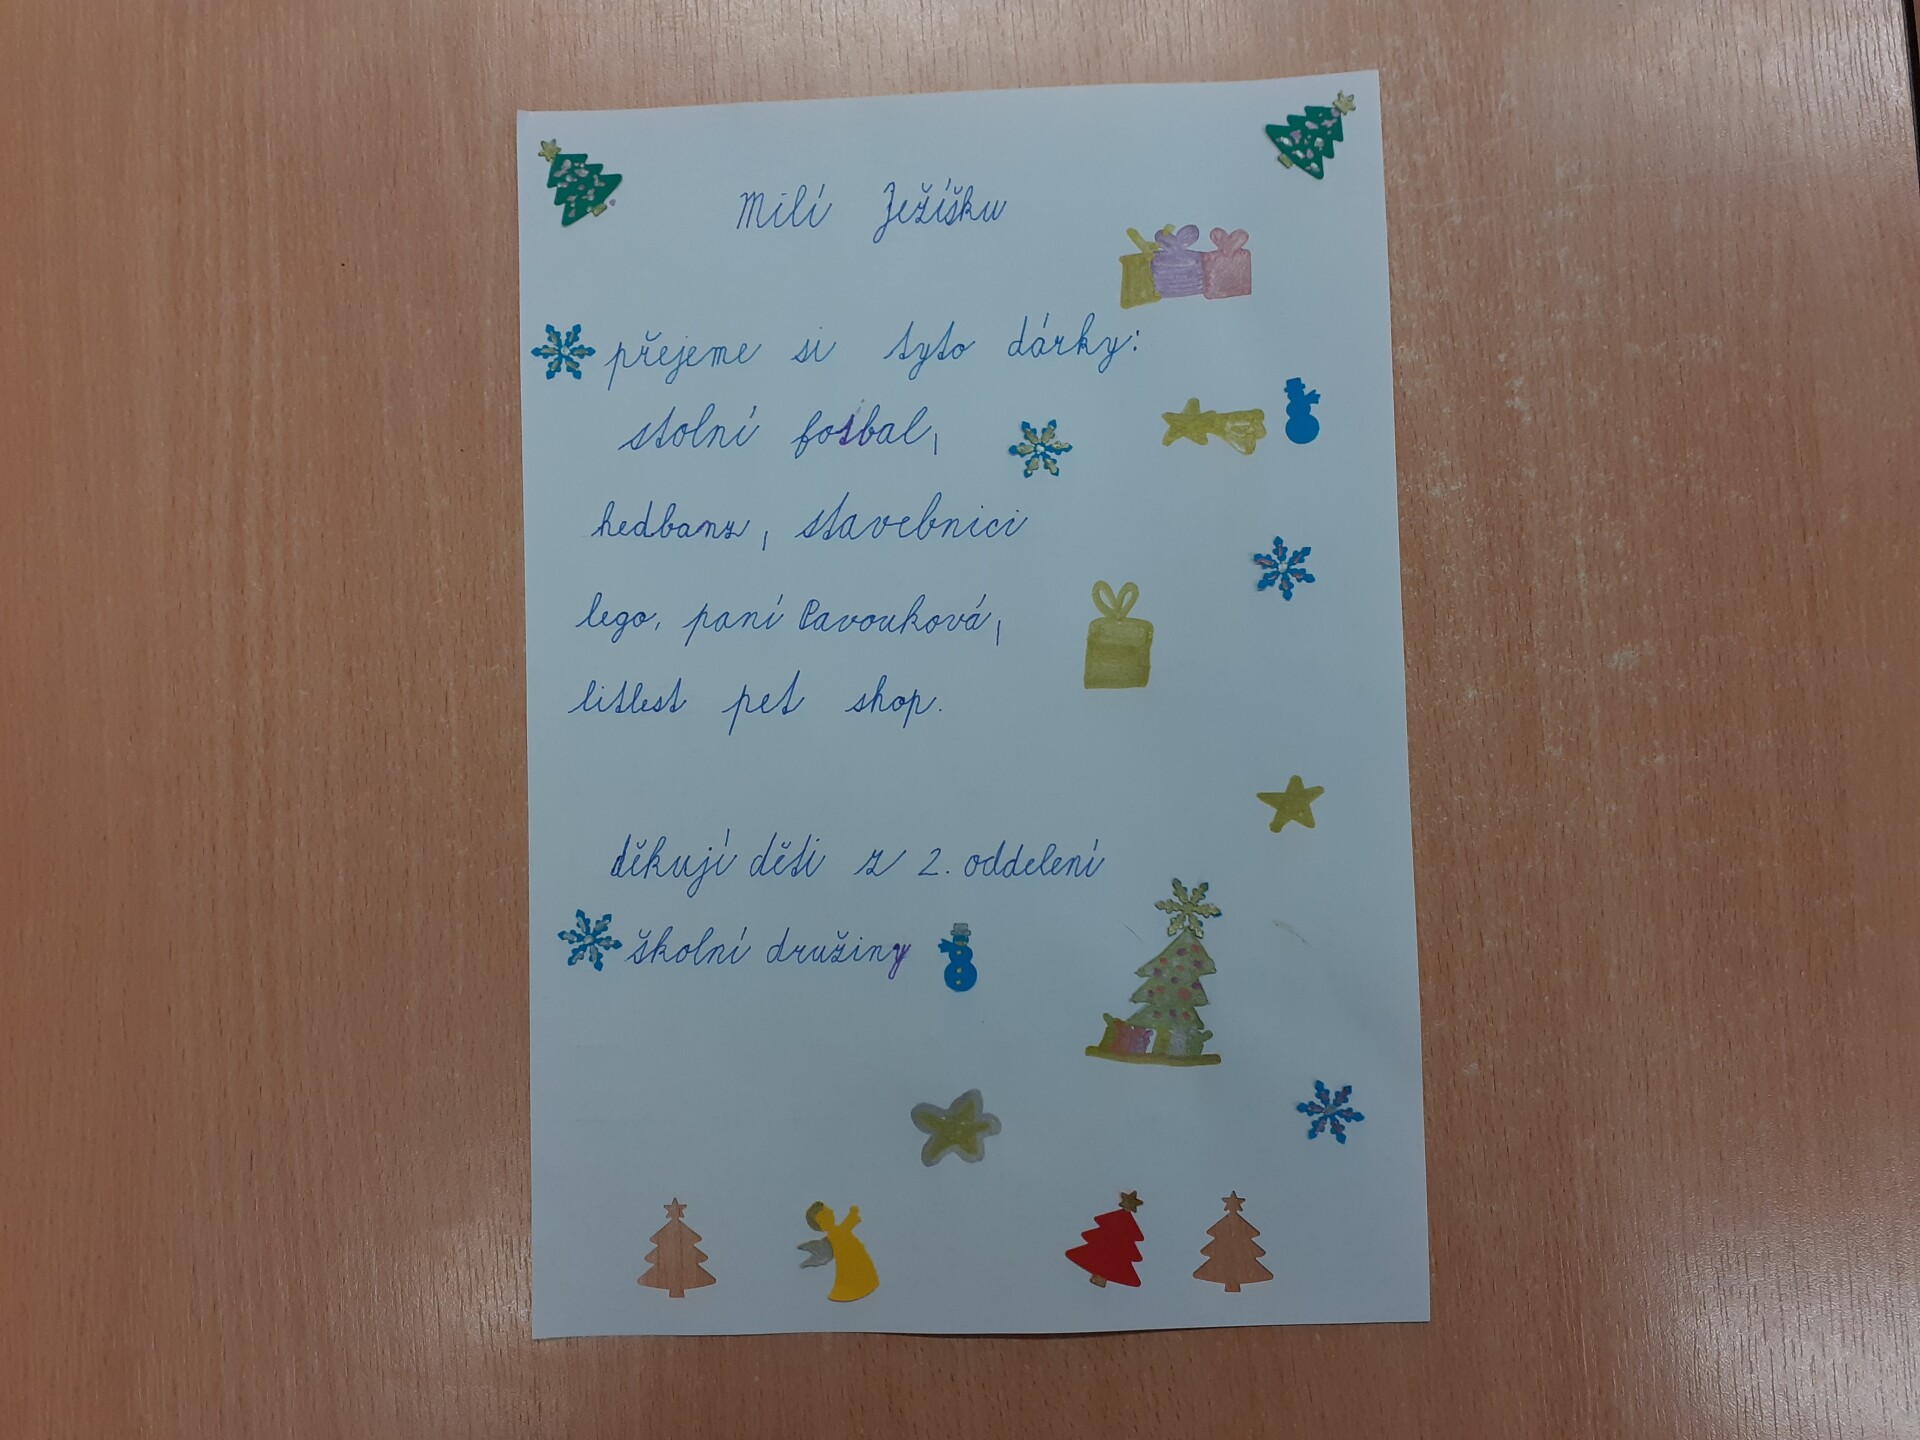 Milí Ježíšku
přejeme si tyto dárky:
stolní fotbal,
hedbanz, stavebnici
lego, paní Pavouková,
litlest pet shop.
děkují děti z 2. oddelení
školní družiny